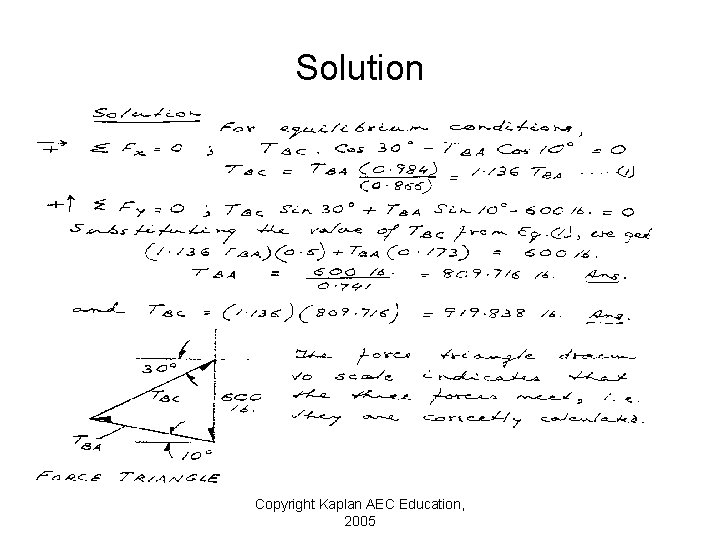 Solution
Solution
For equilibrium conditions,
→+ Σ Fx = 0 ; TBC . Cos 30° - TBA Cos 10° = 0
TBC = TBA (0.984)/(0.866) = 1.136 TBA .... (1)
+↑ Σ Fy = 0 ; TBC Sin 30° + TBA Sin 10° - 600 lb. = 0
Substituting the value of TBC from Eq.(1), we get
(1.136 TBA)(0.5) + TBA (0.173) = 600 lb.
TBA = 600 lb./0.741 = 809.716 lb. Ans.
and TBC = (1.136)(809.716) = 919.838 lb. Ans.
30°
TBC
600 lb.
TBA
10°
FORCE TRIANGLE
The force triangle drawn
to scale indicates that
the three forces meet, i.e.
they are correctly calculated.
Copyright Kaplan AEC Education,
2005